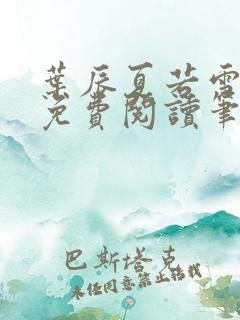 葉辰夏若雪
免費閱讀筆
巴斯塔克
未經同意禁止轉載